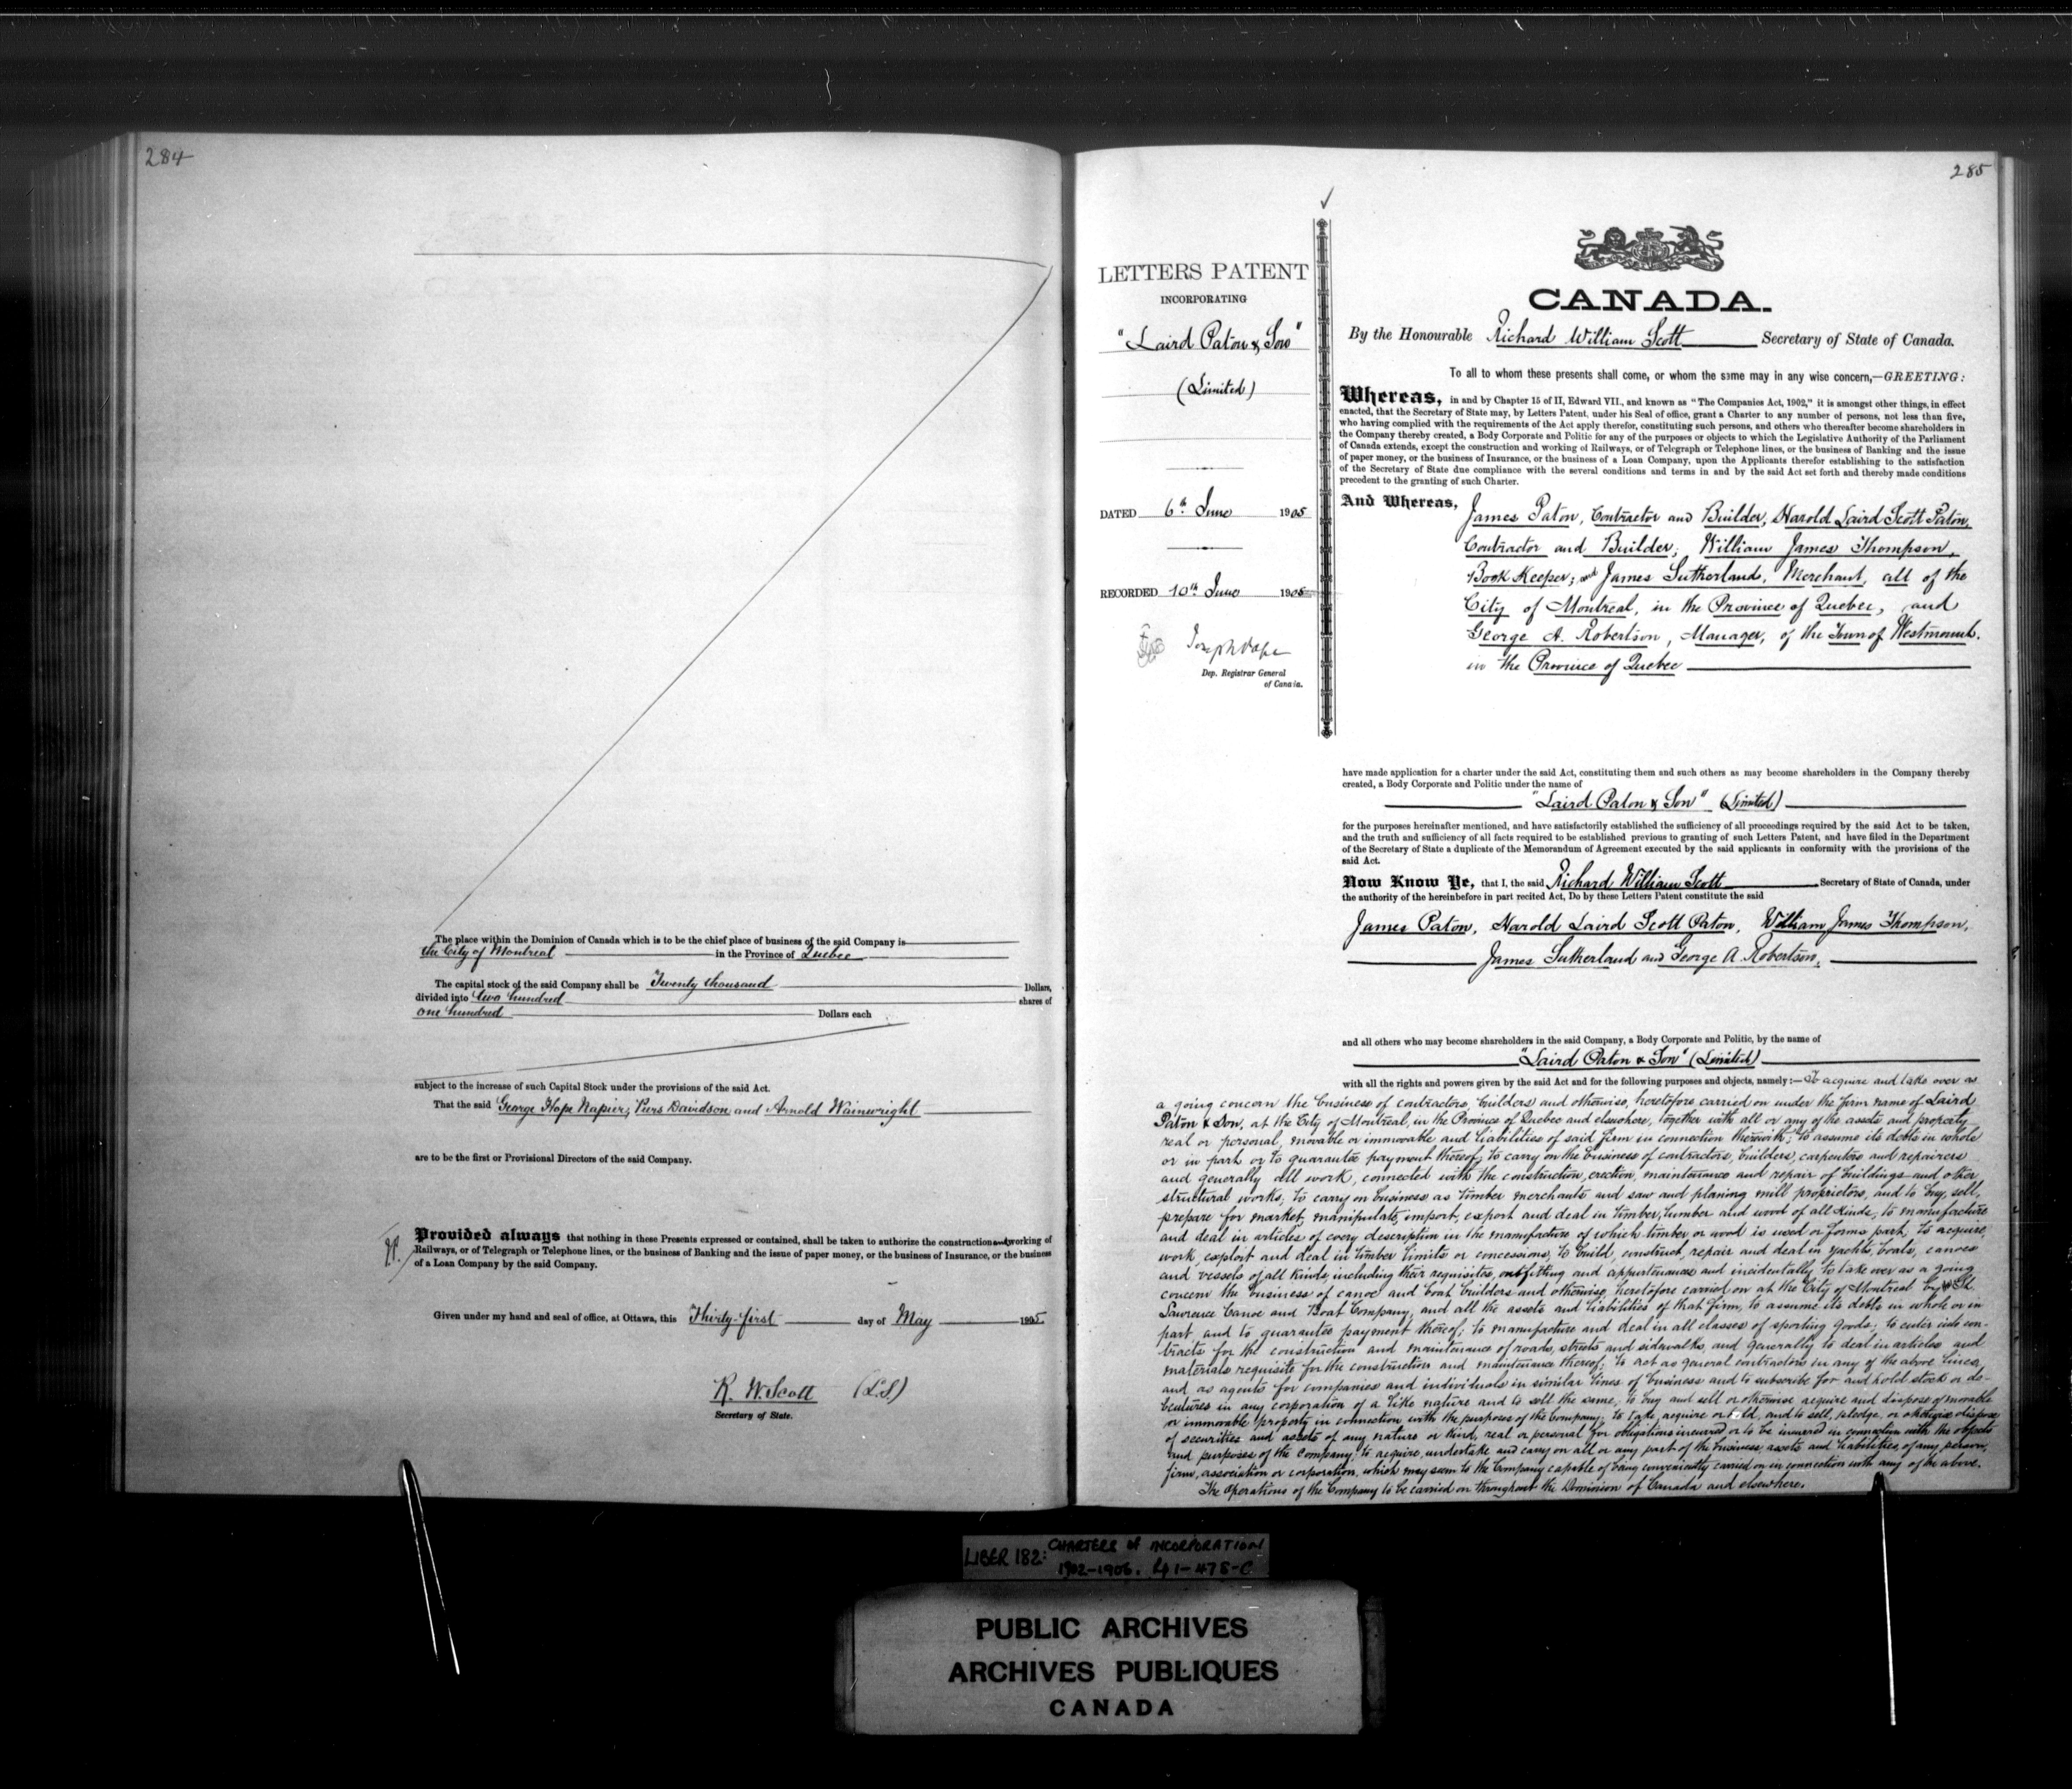 284
The place within the Dominion of Canada which is to be the chief place of business of the said Company is
the City of Montreal in the Province of Quebec
The capital stock of the said Company shall be Twenty thousand Dollars,
divided into two hundred shares of
one hundred Dollars each
subject to the increase of such Capital Stock under the provisions of the said Act.
That the said George Hope Napier, Piers Davidson and Arnold Wainwright
are to be the first or Provisional Directors of the said Company.
Provided always that nothing in these Presents expressed or contained, shall be taken to authorize the construction and working of
Railways, or of Telegraph or Telephone lines, or the business of Banking and the issue of paper money, or the business of Insurance, or the business
of a Loan Company by the said Company.
Given under my hand and seal of office, at Ottawa, this Thirty-first day of May 1905
R. W. Scott (L.S.)
Secretary of State.
285
LETTERS PATENT
INCORPORATING
"Laird Paton & Son"
(Limited)
DATED 6th June 1905
RECORDED 10th June 1905
Joseph Pope
Dep. Registrar General
of Canada.
CANADA.
By the Honourable Richard William Scott Secretary of State of Canada.
To all to whom these presents shall come, or whom the same may in any wise concern,—GREETING:
Whereas, in and by Chapter 15 of II, Edward VII., and known as "The Companies Act, 1902," it is amongst other things, in effect
enacted, that the Secretary of State may, by Letters Patent, under his Seal of office, grant a Charter to any number of persons, not less than five,
who having complied with the requirements of the Act apply therefor, constituting such persons, and others who thereafter become shareholders in
the Company thereby created, a Body Corporate and Politic for any of the purposes or objects to which the Legislative Authority of the Parliament
of Canada extends, except the construction and working of Railways, or of Telegraph or Telephone lines, or the business of Banking and the issue
of paper money, or the business of Insurance, or the business of a Loan Company, upon the Applicants therefor establishing to the satisfaction
of the Secretary of State due compliance with the several conditions and terms in and by the said Act set forth and thereby made conditions
precedent to the granting of such Charter.
And Whereas, James Paton, Contractor and Builder, Harold Laird Scott Paton,
Contractor and Builder; William James Thompson,
Book Keeper; and James Sutherland, Merchant, all of the
City of Montreal, in the Province of Quebec, and
George A. Robertson, Manager, of the Town of Westmount.
in the Province of Quebec
have made application for a charter under the said Act, constituting them and such others as may become shareholders in the Company thereby
created, a Body Corporate and Politic under the name of
"Laird Paton & Son" (Limited)
for the purposes hereinafter mentioned, and have satisfactorily established the sufficiency of all proceedings required by the said Act to be taken,
and the truth and sufficiency of all facts required to be established previous to granting of such Letters Patent, and have filed in the Department
of the Secretary of State a duplicate of the Memorandum of Agreement executed by the said applicants in conformity with the provisions of the
said Act.
Now Know Ye, that I, the said Richard William Scott Secretary of State of Canada, under
the authority of the hereinbefore in part recited Act, Do by these Letters Patent constitute the said
James Paton, Harold Laird Scott Paton, William James Thompson,
James Sutherland and George A. Robertson,
and all others who may become shareholders in the said Company, a Body Corporate and Politic, by the name of
"Laird Paton & Son" (Limited)
with all the rights and powers given by the said Act and for the following purposes and objects, namely:— To acquire and take over as
a going concern the business of contractors, builders and otherwise, heretofore carried on under the firm name of Laird
Paton & Son, at the City of Montreal, in the Province of Quebec and elsewhere, together with all or any of the assets and property
real or personal, movable or immovable and liabilities of said firm in connection therewith; to assume its debts in whole
or in part or to guarantee payment thereof; to carry on the business of contractors, builders, carpenters and repairers
and generally all work, connected with the construction, erection, maintenance and repair of buildings and other
structural works; to carry on business as timber merchants and saw and planing mill proprietors, and to buy, sell,
prepare for market, manipulate, import, export and deal in timber, lumber and wood of all kinds; to manufacture
and deal in articles of every description in the manufacture of which timber or wood is used or forms part; to acquire,
work, exploit and deal in timber limits or concessions; to build, construct, repair and deal in yachts, boats, canoes
and vessels of all kinds, including their requisites, outfitting and appurtenances and incidentally to take over as a going
concern the business of canoe and boat builders and otherwise, heretofore carried on at the City of Montreal by St.
Lawrence Canoe and Boat Company, and all the assets and liabilities of that firm, to assume its debts in whole or in
part and to guarantee payment thereof; to manufacture and deal in all classes of sporting goods; to enter into con-
tracts for the construction and maintenance of roads, streets and sidewalks, and generally to deal in articles and
materials requisite for the construction and maintenance thereof; to act as general contractors in any of the above lines,
and as agents for companies and individuals in similar lines of business and to subscribe for and hold stock or de-
bentures in any corporation of a like nature and to sell the same; to buy and sell or otherwise acquire and dispose of movable
or immovable property in connection with the purposes of the Company; to take, acquire or hold, and to sell, pledge, or otherwise dispose
of securities and assets of any nature or kind, real or personal for obligations incurred or to be incurred in connection with the objects
and purposes of the Company; to acquire, undertake and carry on all or any part of the business, assets and liabilities, of any person,
firm, association or corporation, which may seem to the Company capable of being conveniently carried on in connection with any of the above.
The operations of the Company to be carried on throughout the Dominion of Canada and elsewhere.
LIBER 182: CHARTERS OF INCORPORATION
1902-1906.
PUBLIC ARCHIVES
ARCHIVES PUBLIQUES
CANADA